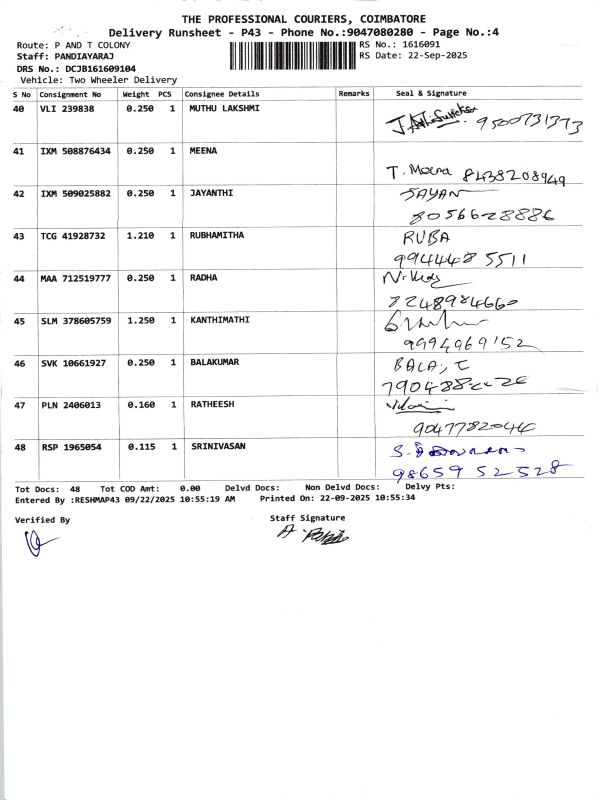 THE PROFESSIONAL COURIERS, COIMBATORE
Delivery Runsheet - P43 - Phone No.:9047080280 - Page No.:4
Route: P AND T COLONY
RS No.: 1616091
Staff: PANDIAYARAJ
RS Date: 22-Sep-2025
DRS No.: DCJB161609104
Vehicle: Two Wheeler Delivery
S No Consignment No Weight PCS Consignee Details Remarks Seal & Signature
40 VLI 239838 0.250 1 MUTHU LAKSHMI
9500731373
41 IXM 508876434 0.250 1 MEENA
T. Meena 8438208949
42 IXM 509025882 0.250 1 JAYANTHI JAYAN
8056628886
43 TCG 41928732 1.210 1 RUBHAMITHA RUBA
9944485511
44 MAA 712519777 0.250 1 RADHA
8248984660
45 SLM 378605759 1.250 1 KANTHIMATHI
9994969152
46 SVK 10661927 0.250 1 BALAKUMAR BALA, T
47 PLN 2406013 0.160 1 RATHEESH
9047782044
48 RSP 1965054 0.115 1 SRINIVASAN
98659 52528
Tot Docs: 48 Tot COD Amt: 0.00 Delvd Docs: Non Delvd Docs: Delvy Pts:
Entered By :RESHMAP43 09/22/2025 10:55:19 AM Printed On: 22-09-2025 10:55:34
Verified By
Staff Signature